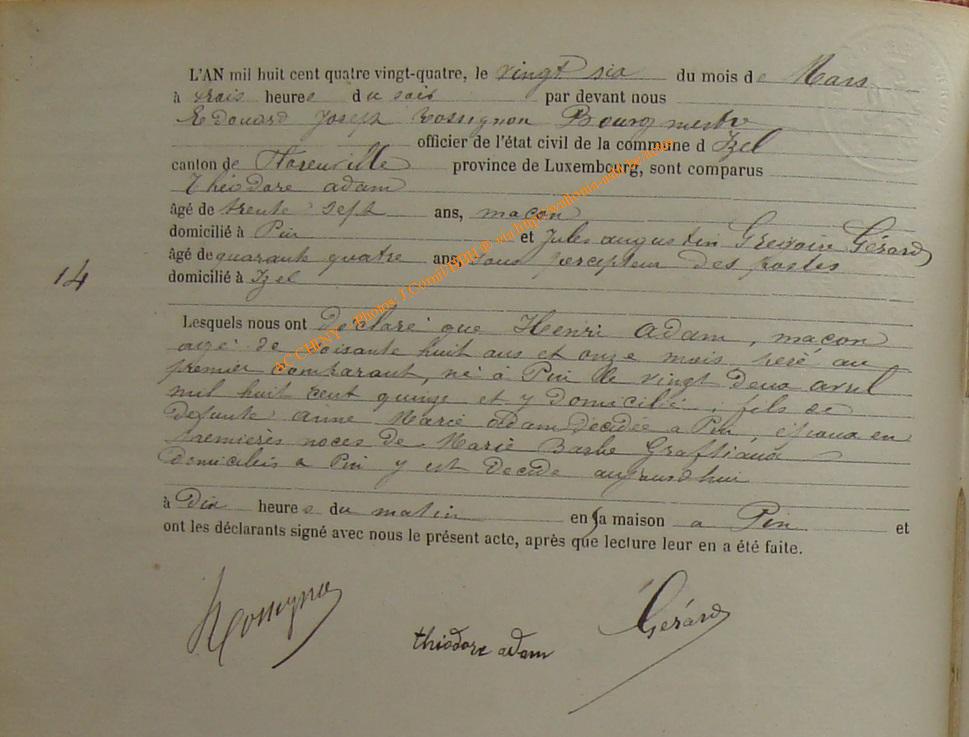 L'AN mil huit cent quatre vingt-quatre, le vingt six du mois de Mars
à trois heures du soir par devant nous
Edouard Joseph Rossignon Bourgmestre
officier de l'état civil de la commune d Izel
canton de Florenville province de Luxembourg, sont comparus
Théodore adam
âgé de trente sept ans, maçon
domicilié à Pin et Jules augustin Grégoire Gérard
âgé de quarante quatre ans, sous percepteur des postes
domicilié à Izel
14
Lesquels nous ont déclaré que Henri adam, maçon
agé de soisante huit ans et onze mois, père au
premier comparant, né à Pin le vingt deux avril
mil huit cent quinze et y domicilié, fils de
défunte anne Marie adam décédée a Pin, époux en
premières noces de Marie Barbe
domicilies a Pin y est décédé aujourdhui
à Dix heures du matin en sa maison a Pin et
ont les déclarants signé avec nous le présent acte, après que lecture leur en a été faite.
théodore adam
Gérard